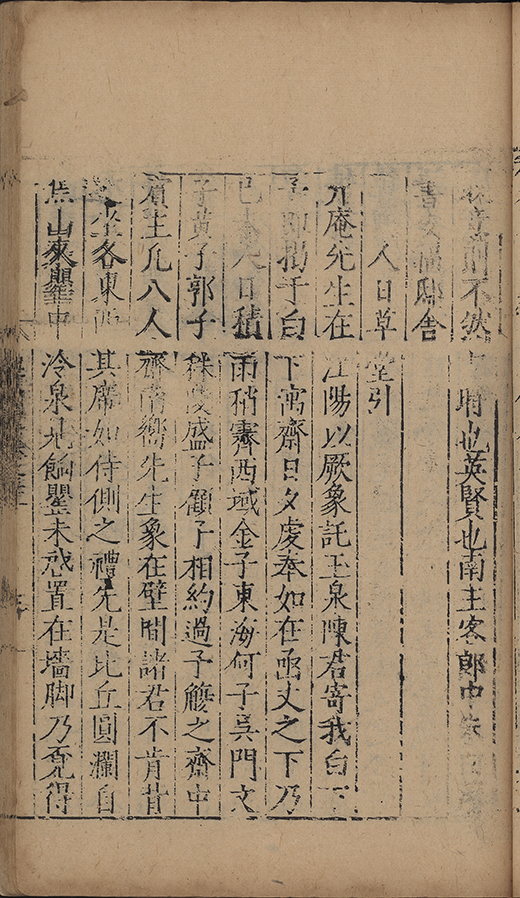 則不然時也英賢也南主客郎中朱曰
書邸舍
人日草堂引
升庵先生在江陽以厥象託玉泉陳君寄我白下
予即揭于白下寓齋日夕虔奉如在函丈之下乃
巳未人日積雨稍霽西域金子東海何子吳門文
子黃子郭子秣陵盛子顧子相約過予觴之齋中
賓主凡八人齋南嚮先生象在壁間諸君不肯背
坐各東西其席如侍側之禮先是比丘圓瀾自
焦山來攜中冷泉餉罌未啟置在墻脚乃得